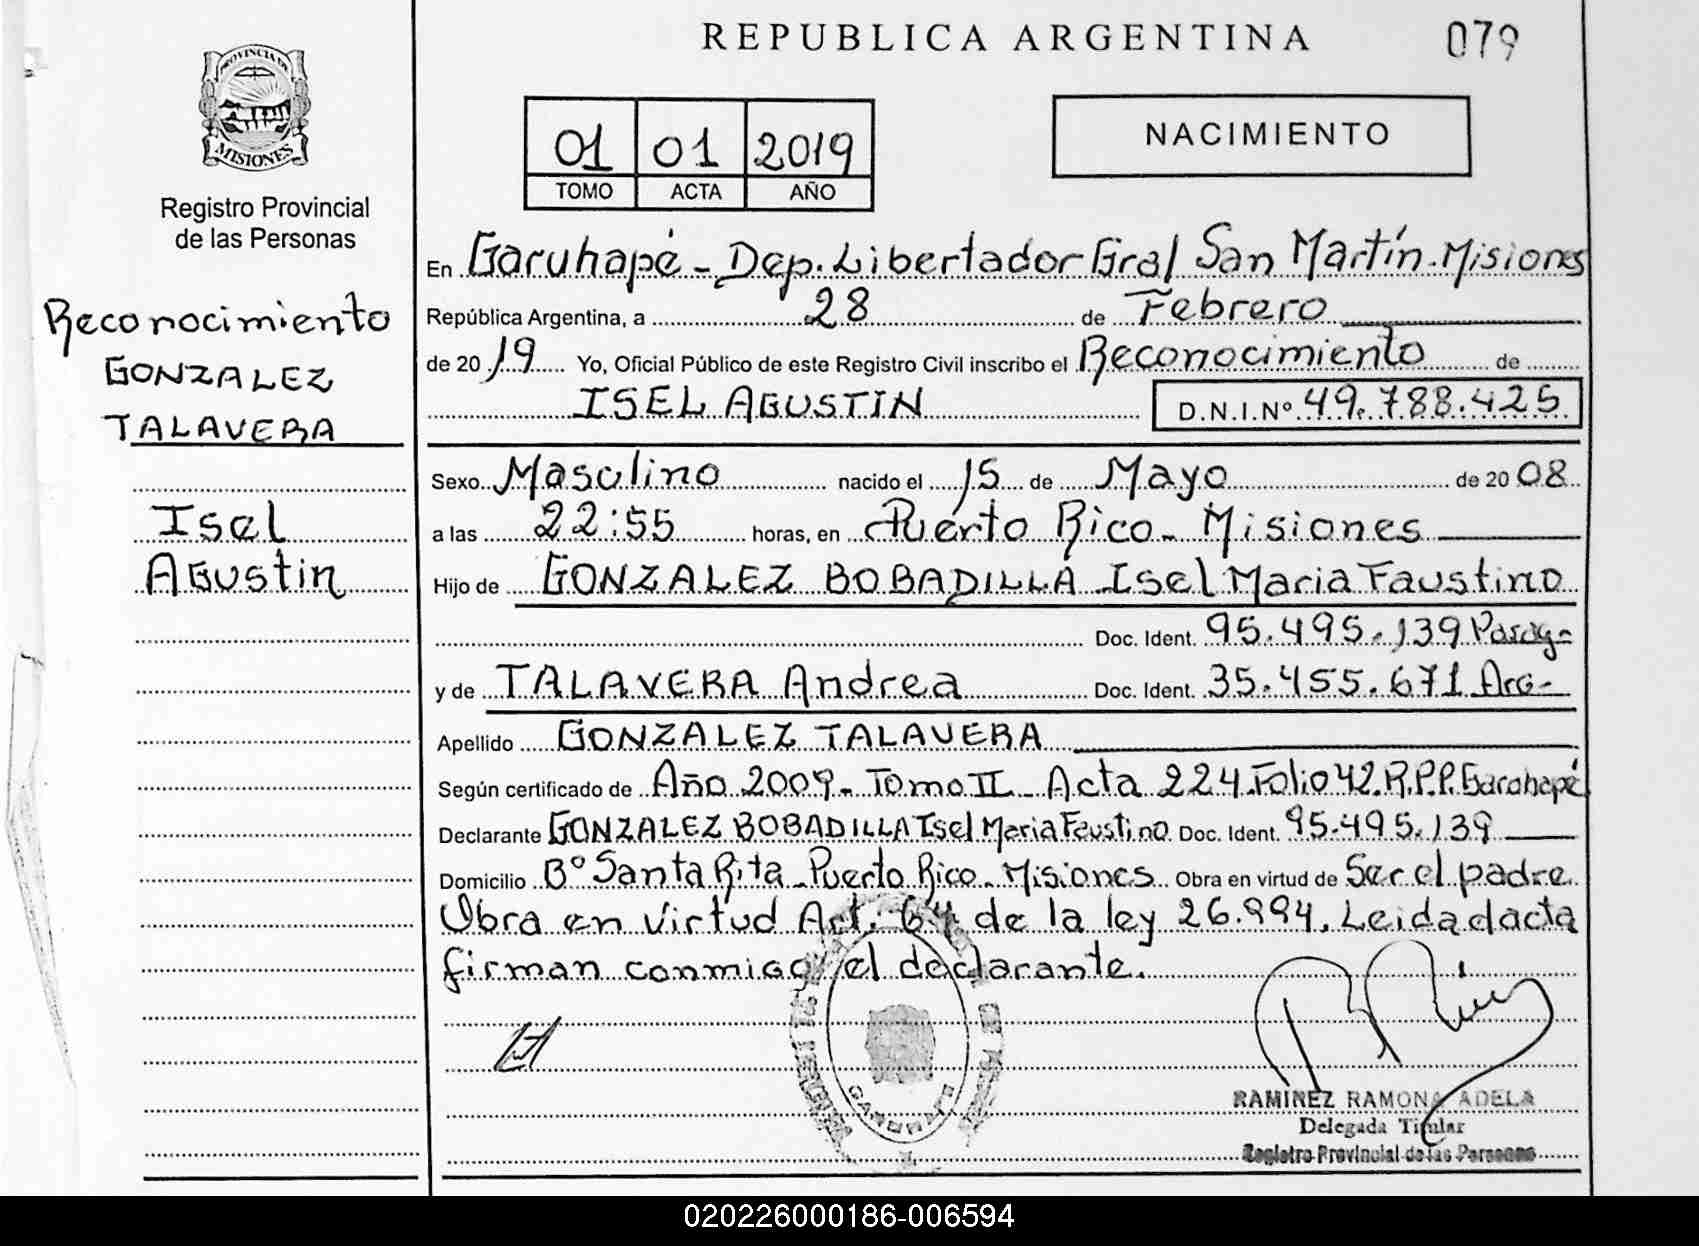 REPUBLICA ARGENTINA
079
PROVINCIA DE
MISIONES
Registro Provincial
de las Personas
01 01 2019
TOMO ACTA AÑO
NACIMIENTO
Reconocimiento
GONZALEZ
TALAVERA
Isel
Agustin
En Garuhapé - Dep. Libertador Gral San Martín. Misiones
República Argentina, a 28 de Febrero
de 2019 Yo, Oficial Público de este Registro Civil inscribo el Reconocimiento de
ISEL AGUSTIN D.N.I.Nº 49.788.425
Sexo Masculino nacido el 15 de Mayo de 2008
a las 22:55 horas, en Puerto Rico - Misiones
Hijo de GONZALEZ BOBADILLA Isel Maria Faustino
Doc. Ident. 95.495.139
y de TALAVERA Andrea Doc. Ident. 35.455.671 Arg-
Apellido GONZALEZ TALAVERA
Según certificado de Año 2009 - Tomo II - Acta 224 Folio 42. R.P.P. Garuhapé
Declarante GONZALEZ BOBADILLA Isel Maria Faustino Doc. Ident. 95.495.139
Domicilio Bº Santa Rita - Puerto Rico - Misiones Obra en virtud de Ser el padre
Obra en virtud Art. 64 de la ley 26.994. Leida d acta
firman conmigo el declarante.
GARUHAPE
RAMIREZ RAMONA ADELA
Delegada Titular
Registro Provincial de las Personas
020226000186-006594